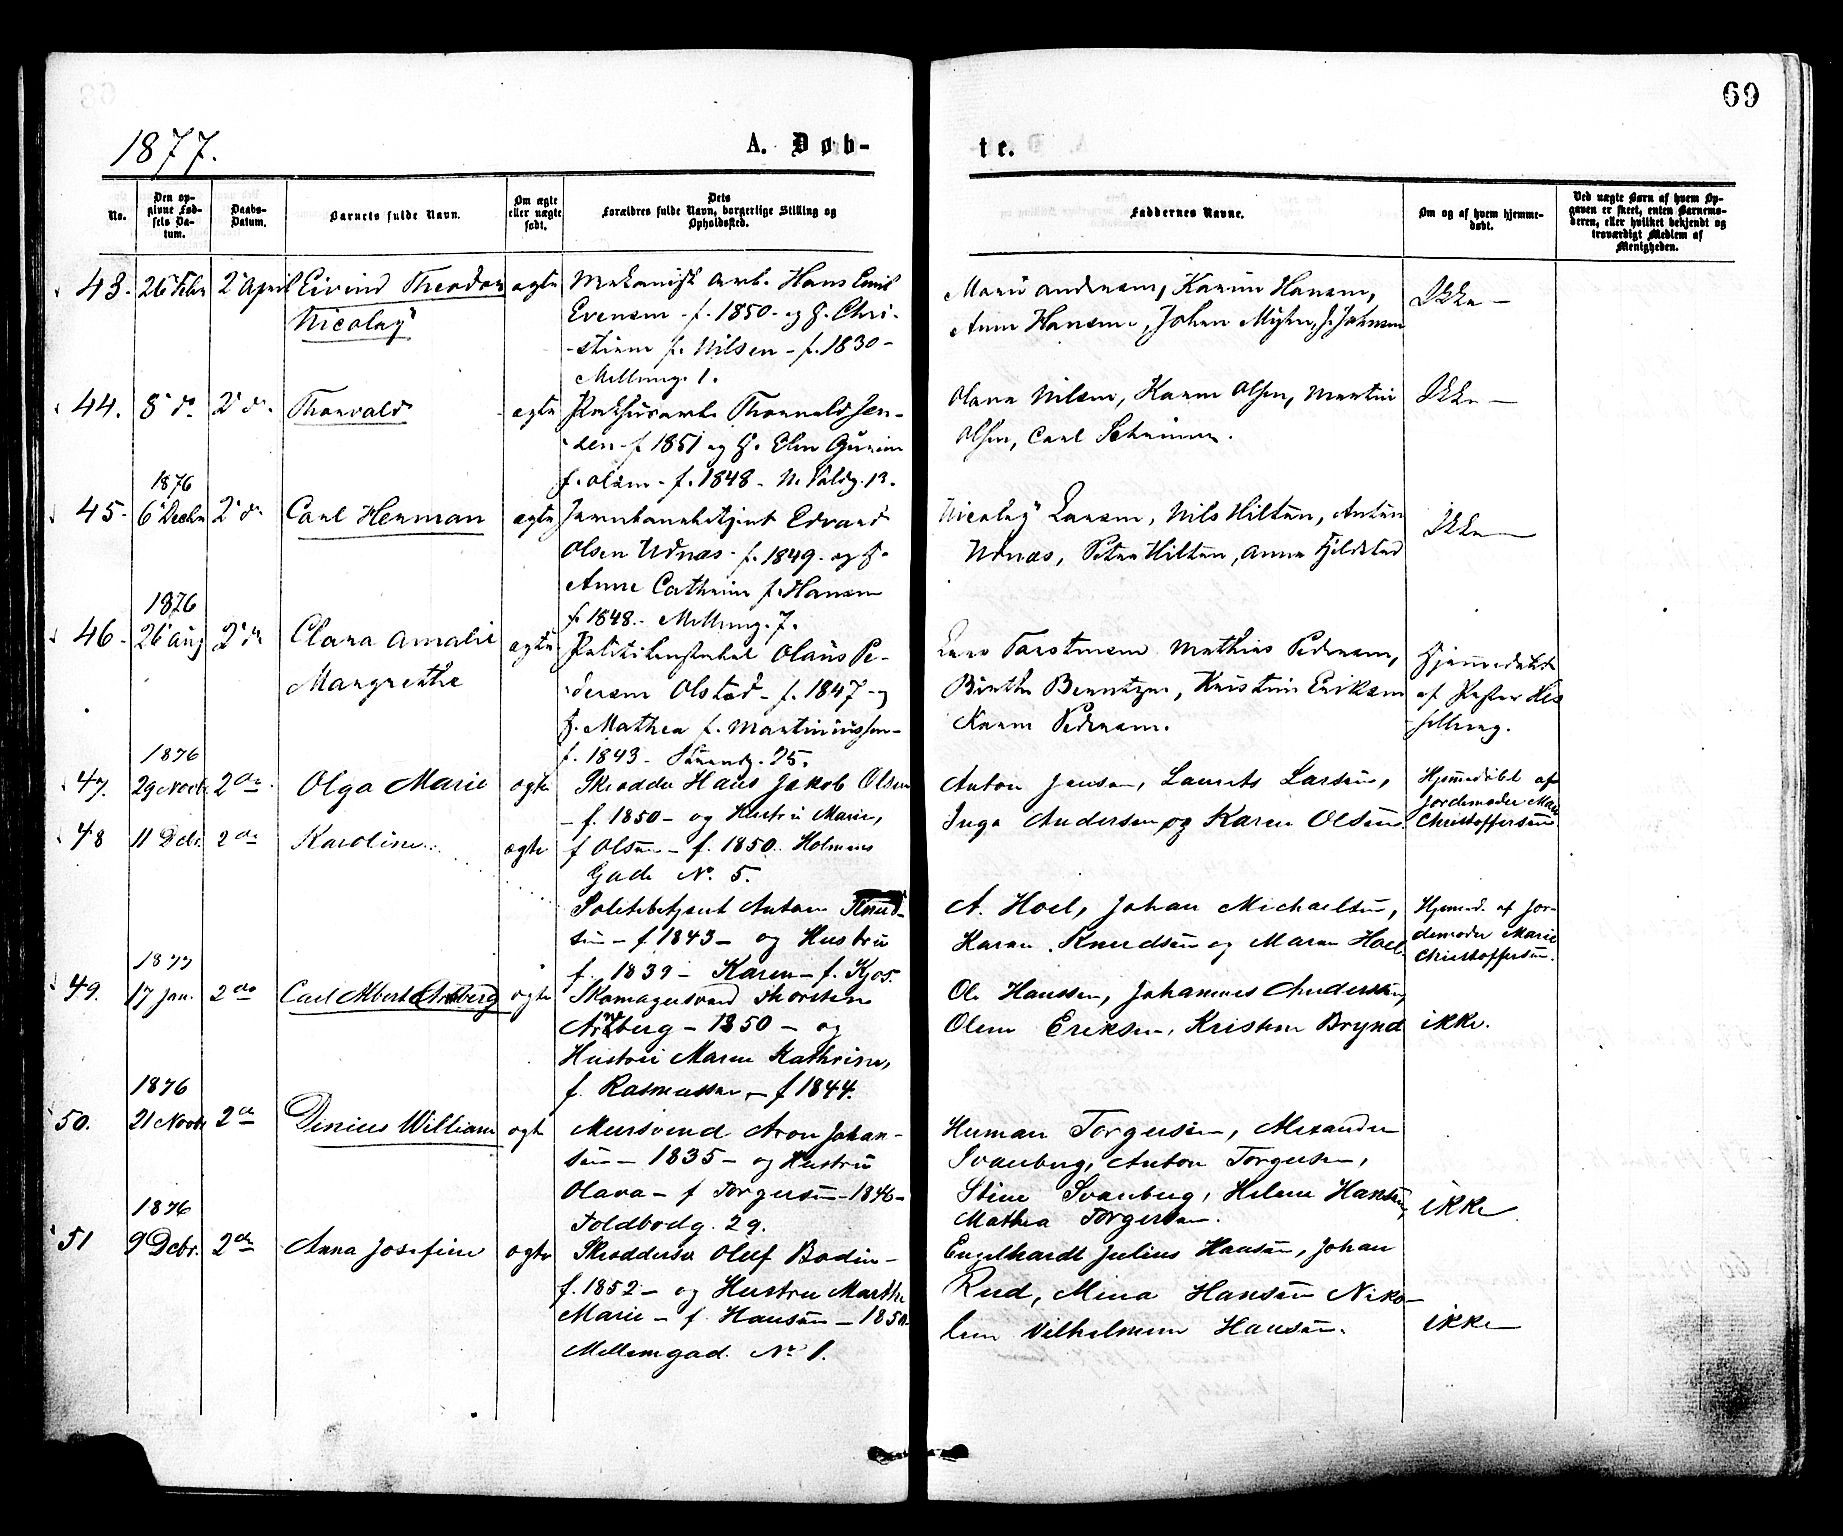 69
1877.
A. Døb-
te.
No.
Den op-
givne Fød-
sels Da-
tum.
Daabs-
Datum.
Barnets fulde Navn.
Om ægte
eller uægte
født.
Dets
Forældres fulde Navn, borgerlige Stilling og
Opholdssted.
Faddernes Navne.
Om og af hvem hjemme-
døbt.
Ved uægte Børn af hvem Op-
gaven er skeet, enten Barnemo-
deren, eller hvilket bekjendt og
troværdigt Medlem af
Menigheden.
43. 26 Febr 2 April Eivind Theodor
Nicolay
ægte
Mekanisk arb. Hans Emil
Evensen - f. 1850 - og H. Chri-
stiane f. Nilsen - f. 1830 -
Mellumg. 1.
Marie Andersen, Karine Hansen,
Anne Hansen, Johan Myhre, J. Johnsen
Ikke -
44. 8 do 2 do Thorvald
ægte
Thorvald Jen-
sen - f. 1851 og H. Elen Gurine
f. Olsen - f. 1848 - N. Voldg. 13.
Olava Nilsen, Karen Olsen, Martin
Olsen, Carl
Ikke -
45. 1876
6 Decbr 2 do Carl Herman
ægte
Edvard
Olsen Udnæs - f. 1849 - og H.
Anne Cathrine f. Hansen
f. 1848 - Mellumg. 7.
Nicolay Larsen, Nils Hilton, Anton
Udnæs, Petra Hilton, Anna Fjeldstad
Ikke
46. 1876
26 Aug 2 do Clara Amalie
Margrethe
ægte
Politikonstabel Olaus Pe-
dersen Olstad - f. 1847 - og
H. Mathea f. Martiniussen -
f. 1843 - 25.
Lars Torstensen Mathias Pedersen,
Birthe Berntzen, Kristine Eriksen
Karen Pedersen.
Hjemmedøbt
af Pastor Hes
selberg.
47. 1876
29 Novbr. 2 do Olga Marie
ægte
Skrædder Hans Jakob Olsen
- f. 1850 - og Hustru Marie,
f. Olsen - f. 1850. Holmens
Gade No. 5.
Anton Jensen, Laurits Larsen,
Inga Andersen og Karen Olsen.
Hjemmedøbt af
Jordemoder Marie
Christoffersen.
48 11 Dcbr. 2 do Karoline
ægte
Politibetjent Anton Knud-
sen - f. 1843 - og Hustru
f. 1839 - Karen - f. Kjos.
A. Hoel, Johan Michaelsen,
Karen Knudsen og Maren Hoel.
Hjemmed. af Jor-
demoder Marie
Christoffersen.
49. 1877
17 Jan. 2 do Carl Albert
ægte
Skomagersvend Thorsten
Arnzberg - 1850 - og
Hustru Maren Kathrine,
f. Rasmussen - f 1844.
Ole Hanssen, Johannes Andersen,
Oline Eriksen, Kristine Brynd
ikke.
50. 1876
21 Novbr 2 do Dinius William
ægte
Mursvend Aron Johan-
sen - 1835 - og Hustru
Olava - f Torgersen - 1846 -
Toldbodg. 29.
Herman Torgersen, Alexander
Svanberg, Anton Torgersen,
Stine Svanberg, Helene Hansen,
Mathea Torgersen.
ikke
51 1876
9 Dcbr. 2 do Anna Josefine
ægte
Skræddersv. Oluf Bodin -
f. 1852 - og Hustru Marthe
Marie - f. Hansen - 1850
Mellemgad. No 1.
Engelhardt Julius Hansen, Johan
Rud, Mina Hansen Niko-
line Vilhelmine Hansen.
ikke